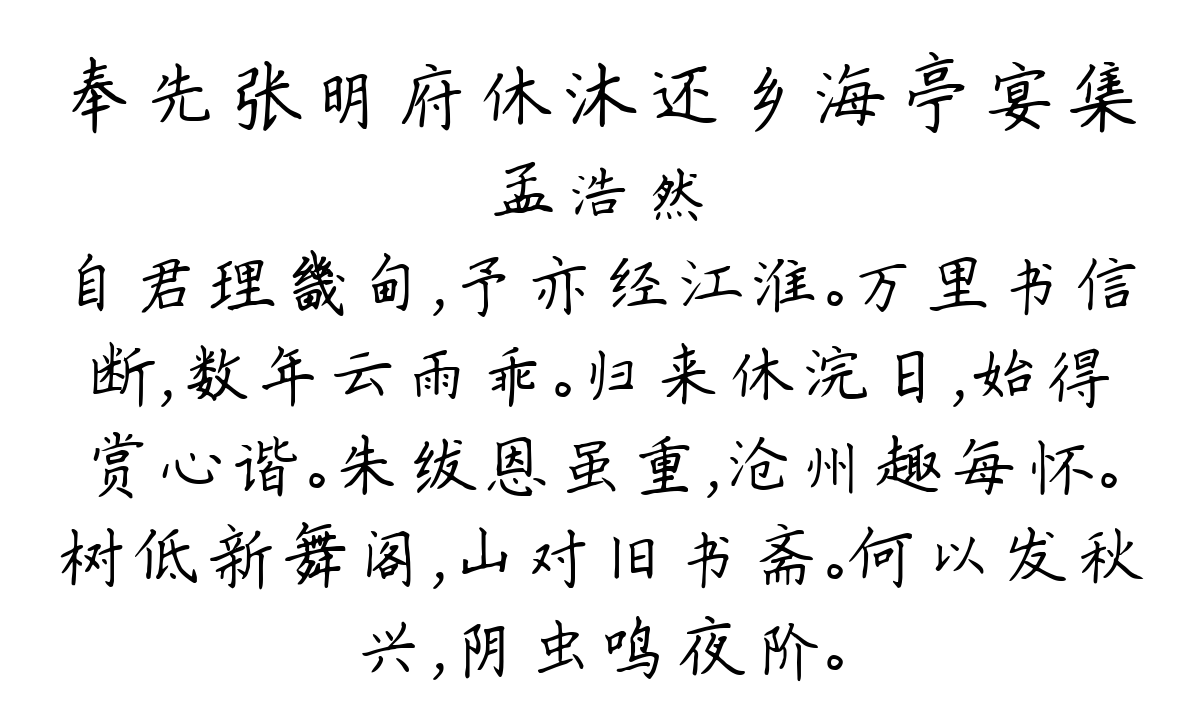 奉先张明府休沐还乡海亭宴集
孟浩然
自君理畿甸,予亦经江淮。万里书信
断,数年云雨乖。归来休浣日,始得
赏心谐。朱绂恩虽重,沧州趣每怀。
树低新舞阁,山对旧书斋。何以发秋
兴,阴虫鸣夜阶。